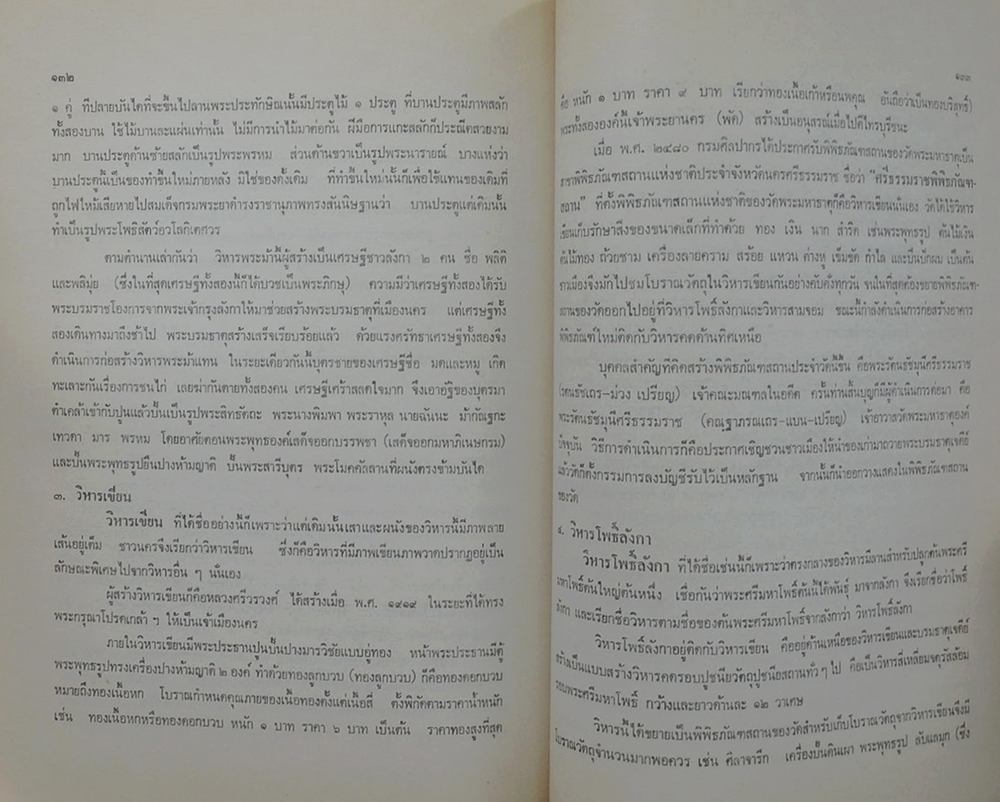 ๑๓๒
๑ คู่ ที่ปลายบันไดที่จะขึ้นไปลานพระประทักษิณนั้นมีประตูไม้ ๑ ประตู ที่บานประตูมีภาพสลัก
ทั้งสองบาน ใช้ไม้บานละแผ่นเท่านั้น ไม่มีการนำไม้มาต่อกัน ฝีมือการแกะสลักก็ประณีตสวยงาม
มาก บานประตูด้านซ้ายสลักเป็นรูปพระพรหม ส่วนด้านขวาเป็นรูปพระนารายณ์ บางแห่งว่า
บานประตูนี้เป็นของทำขึ้นใหม่ภายหลัง มิใช่ของดั้งเดิม ที่ทำขึ้นใหม่นั้นก็เพื่อใช้แทนของเดิมที่
ถูกไฟไหม้เสียหายไปสมเด็จกรมพระยาดำรงราชานุภาพทรงสันนิษฐานว่า บานประตูแต่เดิมนั้น
ทำเป็นรูปพระโพธิสัตว์อวโลกิเตศวร
ตามตำนานเล่ากันว่า วิหารพระม้านี้ผู้สร้างเป็นเศรษฐีชาวลังกา ๒ คน ชื่อ พลิติ
และพลิมุ่ย (ซึ่งในที่สุดเศรษฐีทั้งสองนี้ก็ได้บวชเป็นพระภิกษุ) ความมีว่าเศรษฐีทั้งสองได้รับ
พระบรมราชโองการจากพระเจ้ากรุงลังกาให้มาช่วยสร้างพระบรมธาตุที่เมืองนคร แต่เศรษฐีทั้ง
สองเดินทางมาถึงช้าไป พระบรมธาตุสร้างเสร็จเรียบร้อยแล้ว ด้วยแรงศรัทธาเศรษฐีทั้งสองจึง
ดำเนินการก่อสร้างวิหารพระม้าแทน ในระยะเดียวกันนั้นบุตรชายของเศรษฐีชื่อ มดและหมู เกิด
ทะเลาะกันเรื่องการชนไก่ เลยฆ่ากันตายทั้งสองคน เศรษฐีเศร้าสลดใจมาก จึงเอาอัฐิของบุตรมา
ตำเคล้าเข้ากับปูนแล้วปั้นเป็นรูปพระสิทธัตถะ พระนางพิมพา พระราหุล นายฉันนะ ม้ากัณฐกะ
เทวดา มาร พรหม โดยอาศัยตอนพระพุทธองค์เสด็จออกบรรพชา (เสด็จออกมหาภิเนษกรม)
และปั้นพระพุทธรูปยืนปางห้ามญาติ ปั้นพระสารีบุตร พระโมคคัลลานที่ผนังตรงข้ามบันได
๓. วิหารเขียน
วิหารเขียน ที่ได้ชื่ออย่างนี้ก็เพราะว่าแต่เดิมนั้นเสาและผนังของวิหารนี้มีภาพลาย
เส้นอยู่เต็ม ชาวนครจึงเรียกว่าวิหารเขียน ซึ่งก็คือวิหารที่มีภาพเขียนภาพวาดปรากฏอยู่เป็น
ลักษณะพิเศษไปจากวิหารอื่น ๆ นั่นเอง
ผู้สร้างวิหารเขียนก็คือหลวงศรีวรวงศ์ ได้สร้างเมื่อ พ.ศ. ๑๙๑๙ ในระยะที่ได้ทรง
พระกรุณาโปรดเกล้า ฯ ให้เป็นเจ้าเมืองนคร
ภายในวิหารเขียนมีพระประธานปูนปั้นปางมารวิชัยแบบอู่ทอง หน้าพระประธานมีตู้
พระพุทธรูปทรงเครื่องปางห้ามญาติ ๒ องค์ ทำด้วยทองลูกบวบ (ทองลูกบวบ) ก็คือทองดอกบวบ
หมายถึงทองเนื้อหก โบราณกำหนดคุณภายของเนื้อทองตั้งแต่เนื้อสี่ ตั้งพิกัดตามราคาน้ำหนัก
เช่น ทองเนื้อหกหรือทองดอกบวบ หนัก ๑ บาท ราคา ๖ บาท เป็นต้น ราคาทองสูงที่สุด
๑๓๓
คือ หนัก ๑ บาท ราคา ๙ บาท เรียกว่าทองเนื้อเก้าหรือนพคุณ อันถือว่าเป็นทองบริสุทธิ์
พระทั้งสององค์นี้เจ้าพระยานคร (พัด) สร้างเป็นอนุสรณ์เมื่อไปตีไทรบุรีชนะ
เมื่อ พ.ศ. ๒๔๘๐ กรมศิลปากรได้ประกาศรับพิพิธภัณฑสถานของวัดพระมหาธาตุเป็น
สาขาพิพิธภัณฑสถานแห่งชาติประจำจังหวัดนครศรีธรรมราช ชื่อว่า “ศรีธรรมราชพิพิธภัณฑ-
สถาน” ที่ตั้งพิพิธภัณฑสถานแห่งชาติของวัดพระมหาธาตุก็คือวิหารเขียนนั่นเอง วัดได้ใช้วิหาร
เขียนเก็บรักษาสิ่งของขนาดเล็กที่ทำด้วย ทอง เงิน นาก สำริด เช่นพระพุทธรูป ต้นไม้เงิน
ต้นไม้ทอง ถ้วยชาม เครื่องลายคราม สร้อย แหวน ต่างหู เข็มขัด กำไล และปิ่นปักผม เป็นต้น
ชาวเมืองจึงมักไปชมโบราณวัตถุในวิหารเขียนกันอย่างคับคั่งทุกวัน จนในที่สุดต้องขยายพิพิธภัณฑ-
สถานของวัดออกไปอยู่ที่วิหารโพธิ์ลังกาและวิหารสามจอม ขณะนี้กำลังดำเนินการก่อสร้างอาคาร
พิพิธภัณฑ์ใหม่ติดกับวิหารคดด้านทิศเหนือ
บุคคลสำคัญที่คิดสร้างพิพิธภัณฑสถานประจำวัดนี้ขึ้น คือพระรัตนธัชมุนีศรีธรรมราช
(รตนธัชเถร-ม่วง เปรียญ) เจ้าคณะมณฑลในอดีต ครั้นท่านสิ้นบุญก็มีผู้ดำเนินการต่อมา คือ
พระรัตนธัชมุนีศรีธรรมราช (คณฐาภรณเถร-แบน-เปรียญ) เจ้าอาวาสวัดพระมหาธาตุองค์
ปัจจุบัน วิธีการดำเนินการก็คือประกาศเชิญชวนชาวเมืองให้นำของเก่ามาถวายพระบรมธาตุเจดีย์
แล้ววัดก็ตั้งกรรมการลงบัญชีรับไว้เป็นหลักฐาน จากนั้นก็นำออกวางแสดงในพิพิธภัณฑสถาน
ของวัด
๔. วิหารโพธิ์ลังกา
วิหารโพธิ์ลังกา ที่ได้ชื่อเช่นนี้ก็เพราะว่าตรงกลางของวิหารมีลานสำหรับปลูกต้นพระศรี
มหาโพธิ์ต้นใหญ่ต้นหนึ่ง เชื่อกันว่าพระศรีมหาโพธิ์ต้นนี้ได้พันธุ์ มาจากลังกา จึงเรียกชื่อว่าโพธิ์
ลังกา และเรียกชื่อวิหารตามชื่อของต้นพระศรีมหาโพธิ์จากลังกาว่า วิหารโพธิ์ลังกา
วิหารโพธิ์ลังกาอยู่ติดกับวิหารเขียน คืออยู่ด้านเหนือของวิหารเขียนและบรมธาตุเจดีย์
สร้างเป็นแบบสร้างวิหารคดรอบปูชนียวัตถุปูชนียสถานทั่ว ๆ ไป คือเป็นวิหารสี่เหลี่ยมจตุรัสล้อม
รอบพระศรีมหาโพธิ์ กว้างและยาวด้านละ ๑๒ วาเศษ
วิหารนี้ได้ขยายเป็นพิพิธภัณฑสถานของวัดสำหรับเก็บโบราณวัตถุจากวิหารเขียนจึงมี
โบราณวัตถุจำนวนมากพอควร เช่น ศิลาจารึก เครื่องปั้นดินเผา พระพุทธรูป ลับแลมุก (ซึ่ง